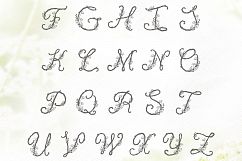 F G H I J
K L M N O
P Q R S T
U V W X Y Z